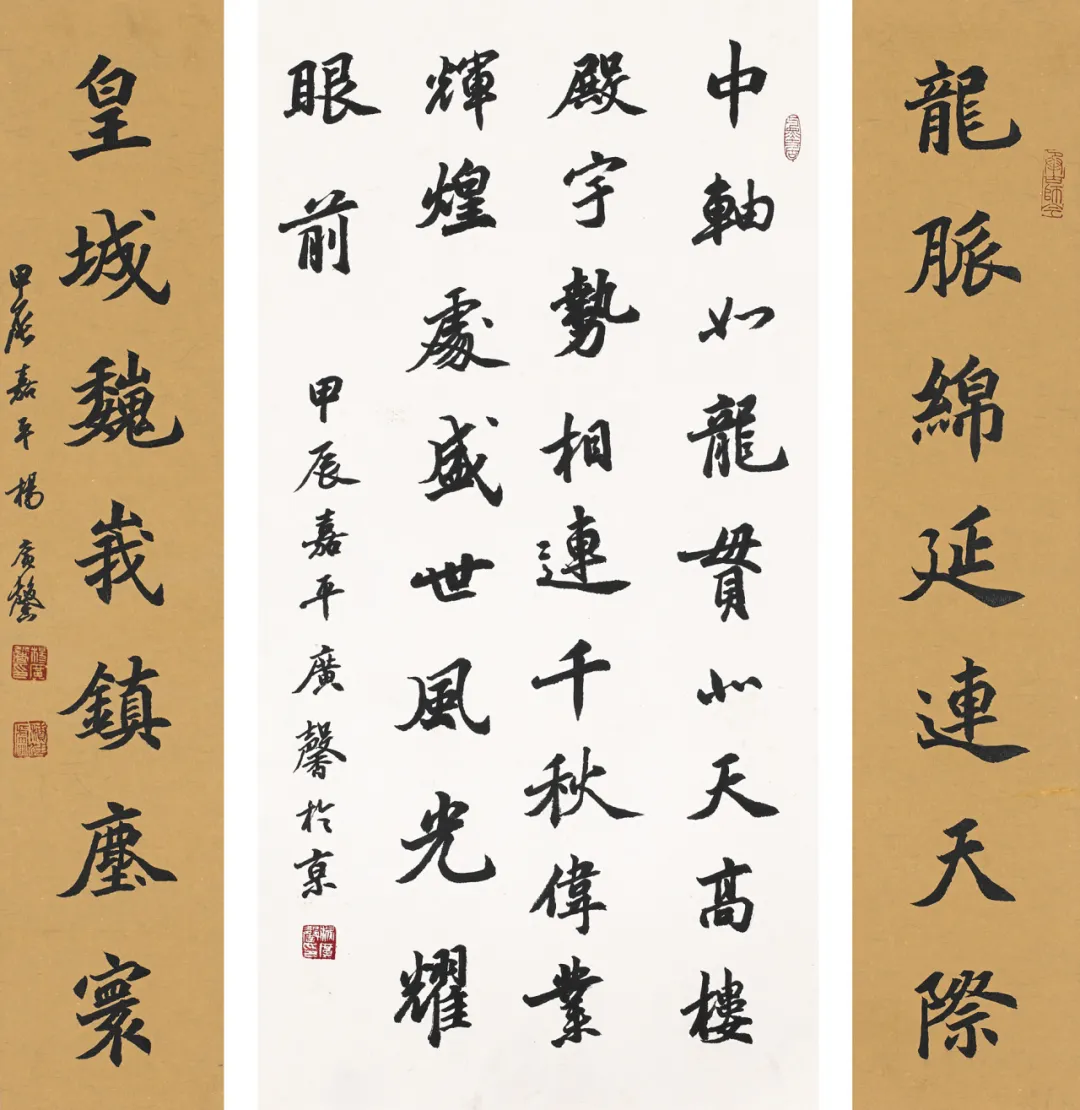 龍脈綿延連天際
中軸如龍貫北天高樓
殿宇勢相連千秋偉業
輝煌處盛世風光耀
眼前
甲辰嘉平廣馨於京
皇城巍峩鎮塵寰
甲辰嘉平楊廣馨